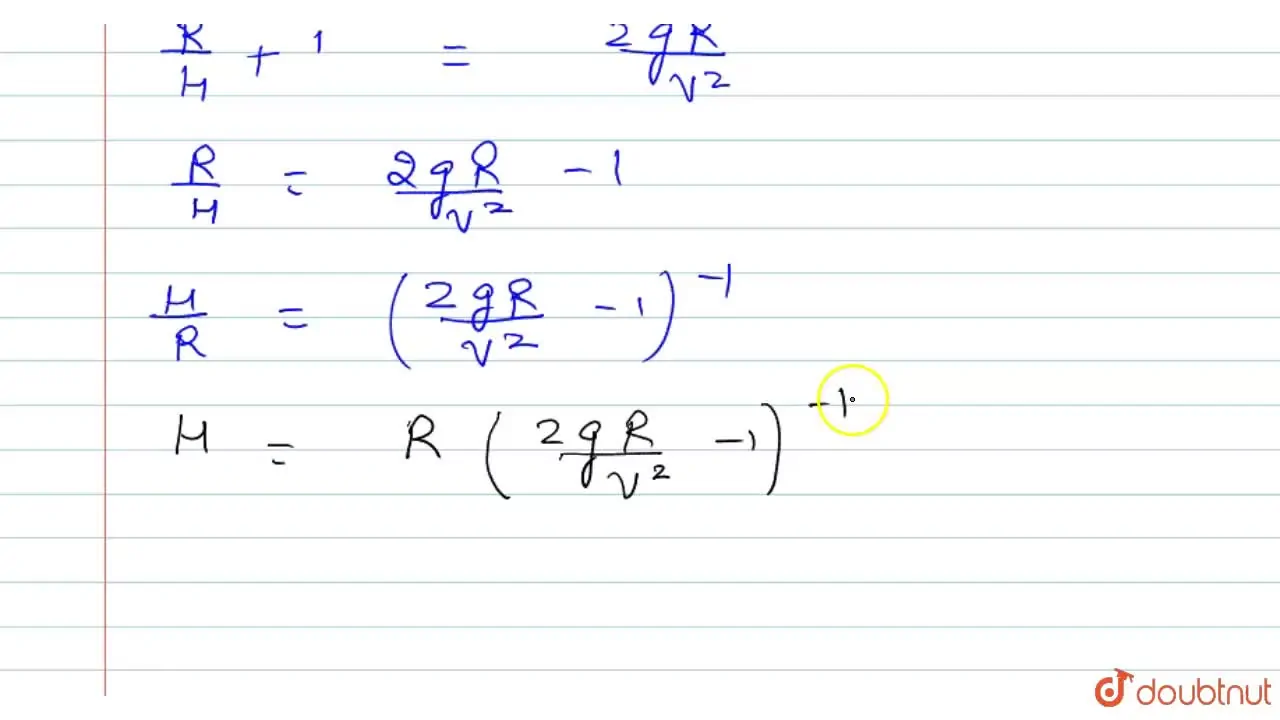 R/H + 1 = 2gR/v²
R/H = 2gR/v² - 1
H/R = (2gR/v² - 1)⁻¹
H = R (2gR/v² - 1)⁻¹
doubtnut